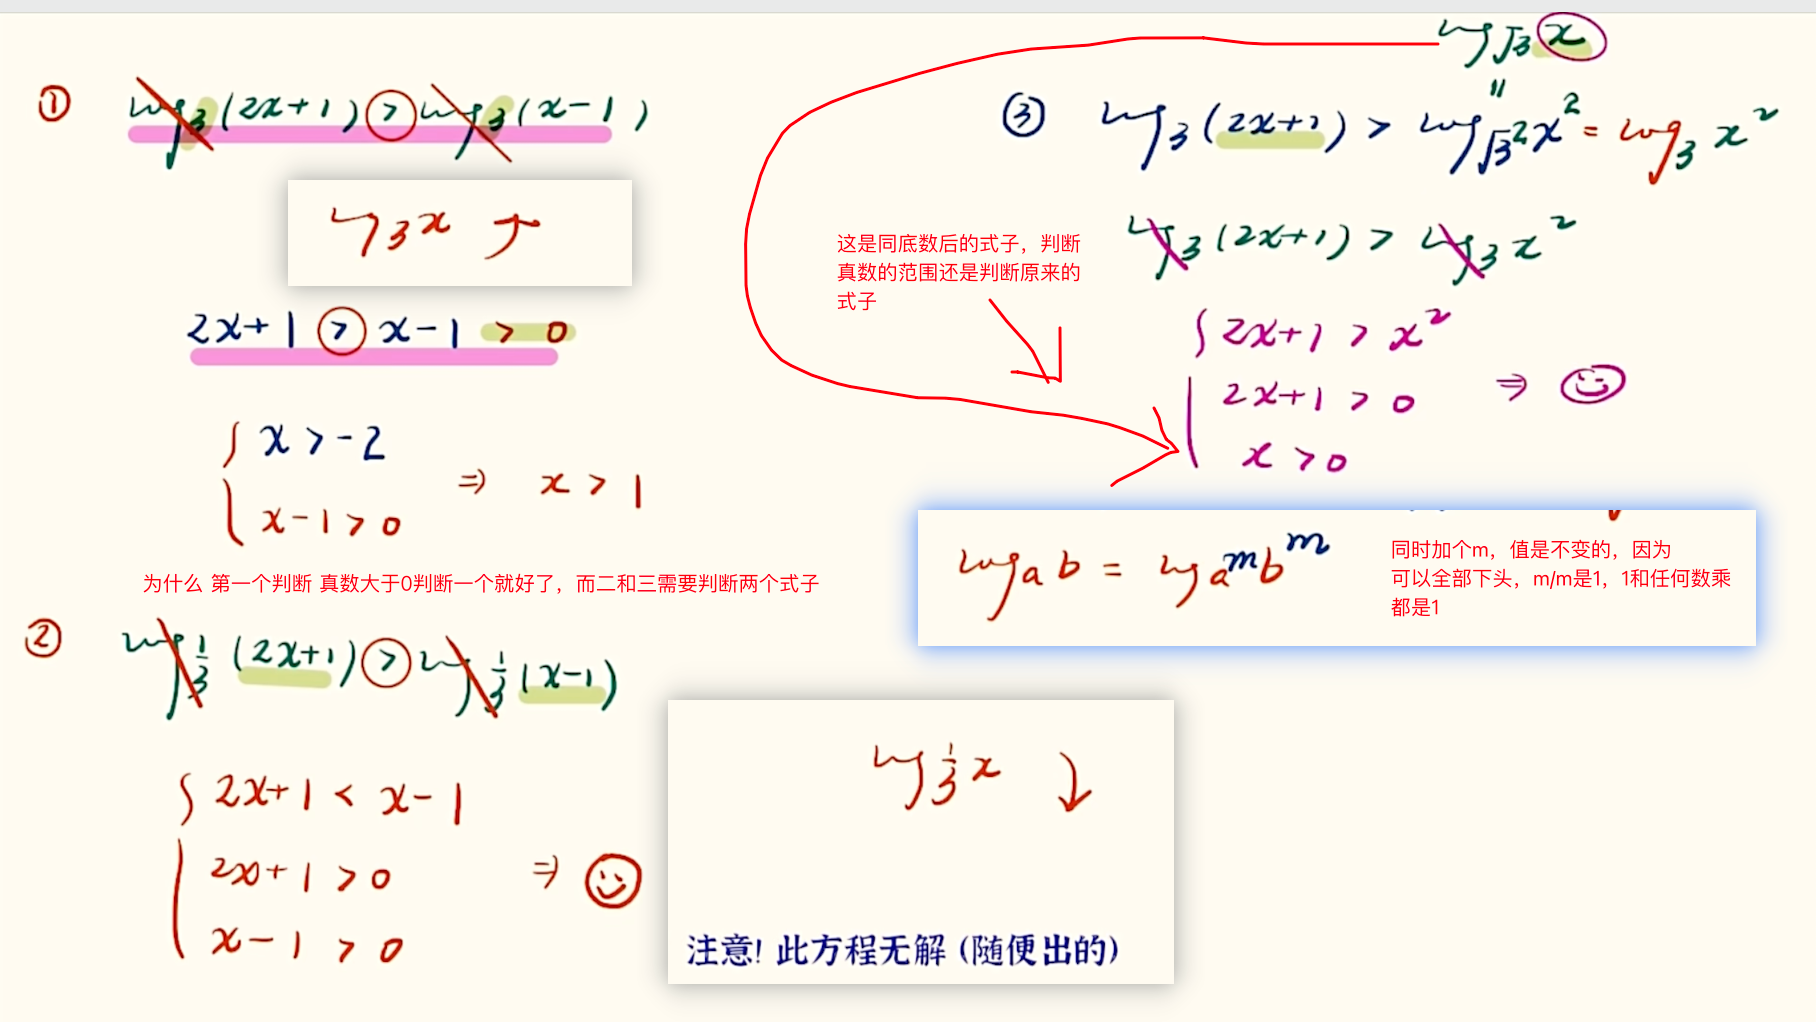 ①
log₃(2x+1) > log₃(x-1)
log₃x ↑
2x+1 > x-1 > 0
{ x > -2
x-1 > 0
⇒ x > 1
为什么 第一个判断 真数大于0判断一个就好了，而二和三需要判断两个式子
②
log_{1/3}(2x+1) > log_{1/3}(x-1)
{ 2x+1 < x-1
2x+1 > 0
x-1 > 0
⇒
log_{1/3}x ↓
注意! 此方程无解 (随便出的)
log_{√3}x
=
③
log₃(2x+1) > log_{√3²}x² = log₃x²
log₃(2x+1) > log₃x²
这是同底数后的式子，判断
真数的范围还是判断原来的
式子
{ 2x+1 > x²
2x+1 > 0
x > 0
⇒
logₐb = log_{a^m}b^m
同时加个m，值是不变的，因为
可以全部下头，m/m是1，1和任何数乘
都是1